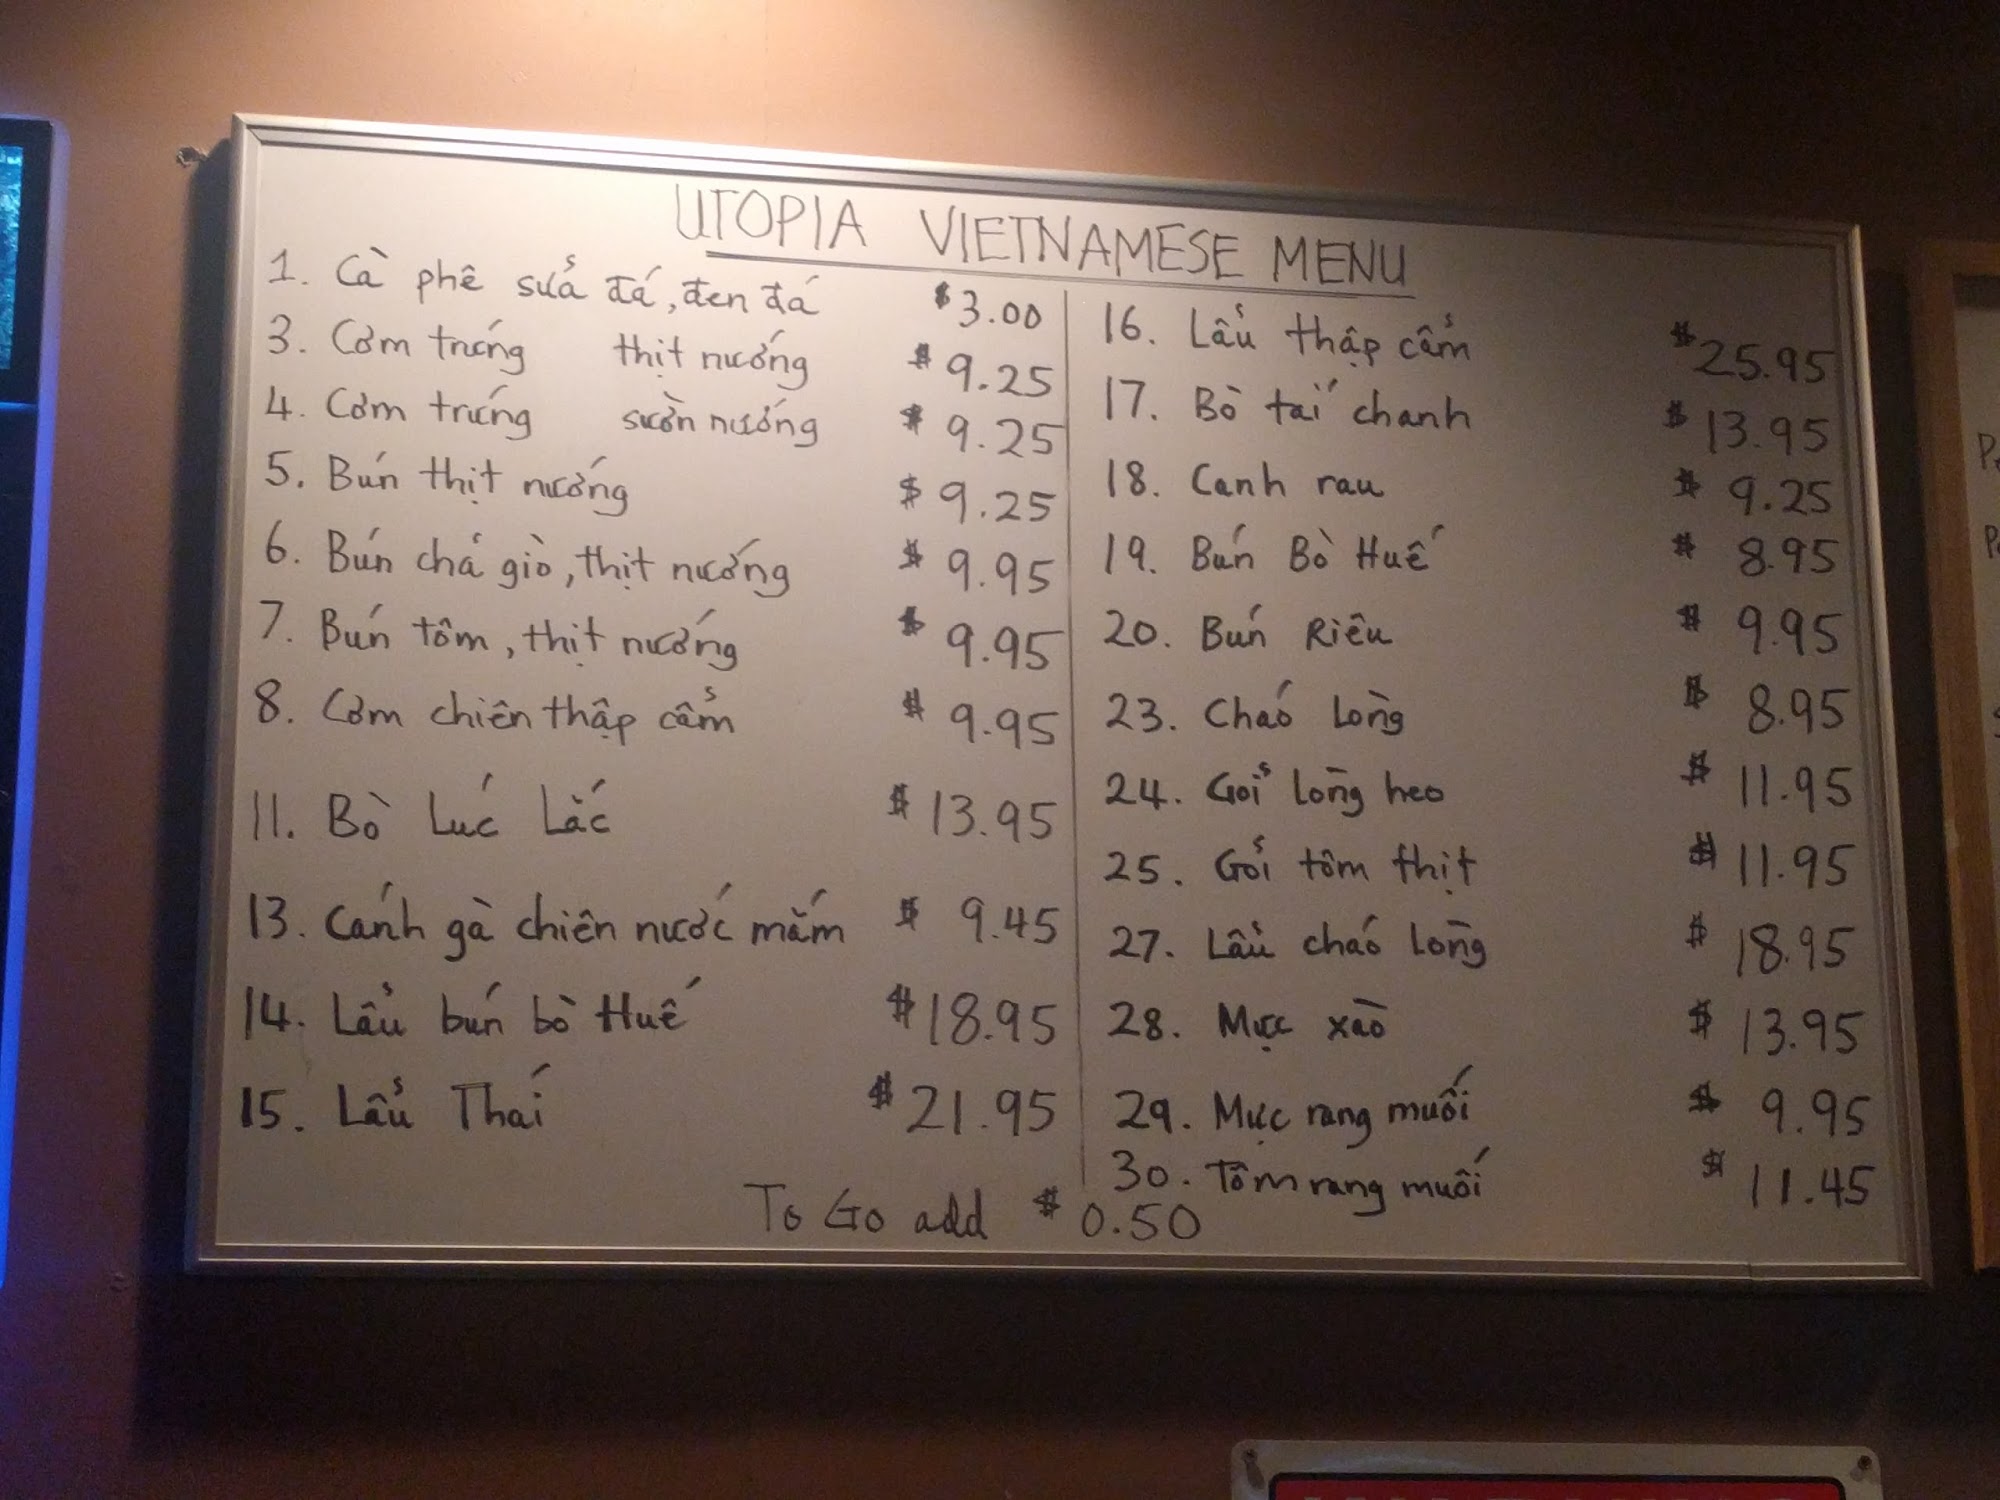 UTOPIA VIETNAMESE MENU
1. Cà phê sưả đá, đen đá $3.00
3. Cơm trứng thịt nướng $9.25
4. Cơm trứng sườn nướng $9.25
5. Bún thịt nướng $9.25
6. Bún chả giò, thịt nướng $9.95
7. Bún tôm, thịt nướng $9.95
8. Cơm chiên thập cẩm $9.95
11. Bò Lúc Lắc $13.95
13. Cánh gà chiên nước mắm $9.45
14. Lẩu bún bò Huế $18.95
15. Lẩu Thái $21.95
16. Lẩu thập cẩm $25.95
17. Bò tái chanh $13.95
18. Canh rau $9.25
19. Bún Bò Huế $8.95
20. Bún Riêu $9.95
23. Cháo Lòng $8.95
24. Gỏi lòng heo $11.95
25. Gỏi tôm thịt $11.95
27. Lẩu cháo lòng $18.95
28. Mực xào $13.95
29. Mực rang muối $9.95
30. Tôm rang muối $11.45
To Go add $0.50